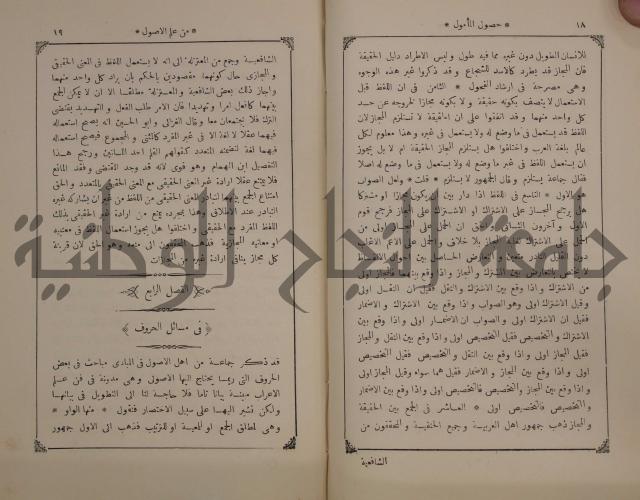 ١٨ * حصول المأمول *
للانسان الطويل دون غيره مما فيه طول و ليس الاطراد دليل الحقيقة
فان المجاز قد يطرد كالاسد للشجاع و قد ذكروا غير هذه الوجوه
وهى مصرحة فى ارشاد الفحول * الثامن فى ان اللفظ قبل
الاستعمال لا يتصف بكونه حقيقة و لا بكونه مجازا لخروجه عن حد
كل واحد منهما و قد اتفقوا على ان الحقيقة لا تستلزم المجاز لان
اللفظ قد يستعمل فى ما وضع له ولا يستعمل فى غيره وهذا معلوم لكل
عالم بلغة العرب واختلفوا هل يستلزم المجاز الحقيقة ام لا بل يجوز
ان يستعمل اللفظ فى غير ما وضع له ولا يستعمل فى ما وضع له اصلا
فقال جماعة يستلزم و قال الجمهور لا يستلزم * قلت * ولعل الصواب
هو الاول * التاسع فى اللفظ اذا دار بين ان يكون مجازا او مشتركا
هل يرجح المجاز على الاشتراك او الاشتراك على المجاز فرجح قوم
الاول و آخرون الثانى و الحق ان الحمل على المجاز اولى من
الحمل على الاشتراك لغلبة المجاز بلا خلاف و الحمل على الاعم الاغلب
دون القليل النادر متعين و التعارض الحاصل بين احوال الالفاظ
لا يختص بالتعارض بين المشترك و المجاز فاذا وقع بينهما فالمجاز اولى
من الاشتراك و اذا وقع بين الاشتراك و النقل فقيل ان النقل اولى
و قيل الاشتراك اولى وهو الصواب و اذا وقع بين الاشتراك و الاضمار
فقيل ان الاشتراك اولى و الصواب ان الاضمار اولى و اذا وقع بين
الاشتراك و التخصيص فقيل التخصيص اولى و اذا وقع بين النقل و المجاز
فقيل المجاز اولى و اذا وقع بين النقل و التخصيص فقيل التخصيص
اولى و اذا وقع بين المجاز و الاضمار فقيل هما سواء وقيل المجاز اولى
و اذا وقع بين المجاز والتخصيص فالتخصيص اولى و اذا وقع بين الاضمار
و التخصيص فالتخصيص اولى * العاشر فى الجمع بين الحقيقة
و المجاز ذهب جمهور اهل العربية و جميع الحنفية و المحققون من
الشافعية
* من علم الاصول * ١٩
الشافعية و جمع من المعتزلة الى انه لا يستعمل اللفظ فى المعنى الحقيقى
و المجازى حال كونهما مقصودين بالحكم بان يراد كل واحد منهما
واجاز ذلك بعض الشافعية و المعتزلة مطلقا الا ان لا يمكن الجمع
بينهما كافعل امرا وتهديدا فان الامر طلب الفعل و التهديد يقتضى
الترك فلا يجتمعان معا وقال الغزالى و ابو الحسين انه يصح استعماله
فيهما عقلا لا لغة الا فى غير المفرد كالمثنى و المجموع فيصح استعماله
فيهما لغة لتضمنه المتعدد كقولهم القلم احد اللسانين ورجح هذا
التفصيل ابن الهمام وهو قوى لانه قد وجد المقتضى وفقد المانع
فلا يمتنع عقلا ارادة غير المعنى الحقيقى مع المعنى الحقيقى بالمتعدد والحق
امتناع الجمع بينهما لتبادر المعنى الحقيقى من اللفظ من غير ان يشاركه غيره
التبادر عند الاطلاق وهذا بمجرده يمنع من ارادة غير الحقيقى بذلك
اللفظ المفرد مع الحقيقى و اختلفوا هل يجوز استعمال اللفظ فى معنييه
او معانيه المجازية فذهب المحققون الى منعه وهو الحق لان قرينة
كل مجاز ينافى ارادة غيره من المجازات
﴿ الفصل الرابع ﴾
﴿ فى مسائل الحروف ﴾
قد ذكر جماعة من اهل الاصول فى المبادى مباحث فى بعض
الحروف التى ربما يحتاج اليها الاصولى وهى مدونة فى فن علم
الاعراب مبينة بيانا تاما فلا حاجة لنا الى التطويل فى بيانها
ولكن نشير اليها على سبيل الاختصار فنقول * منها الواو *
وهى لمطلق الجمع او للمعية او للترتيب فذهب الى الاول جمهور
جامعة النجاح الوطنية